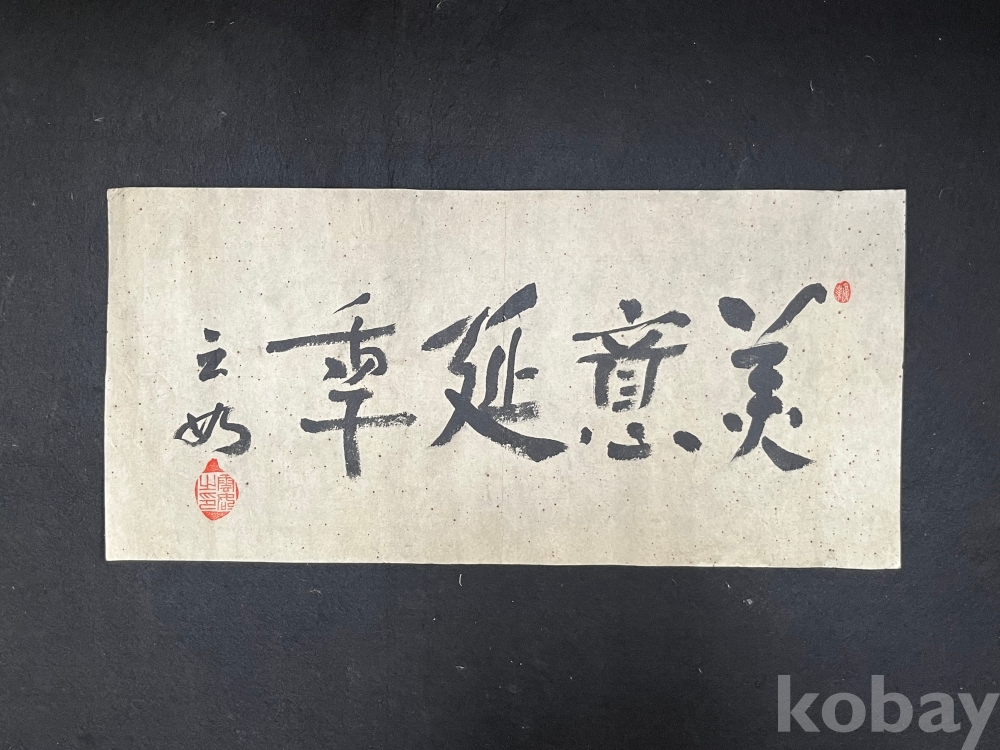 美意延年
云如
kobay